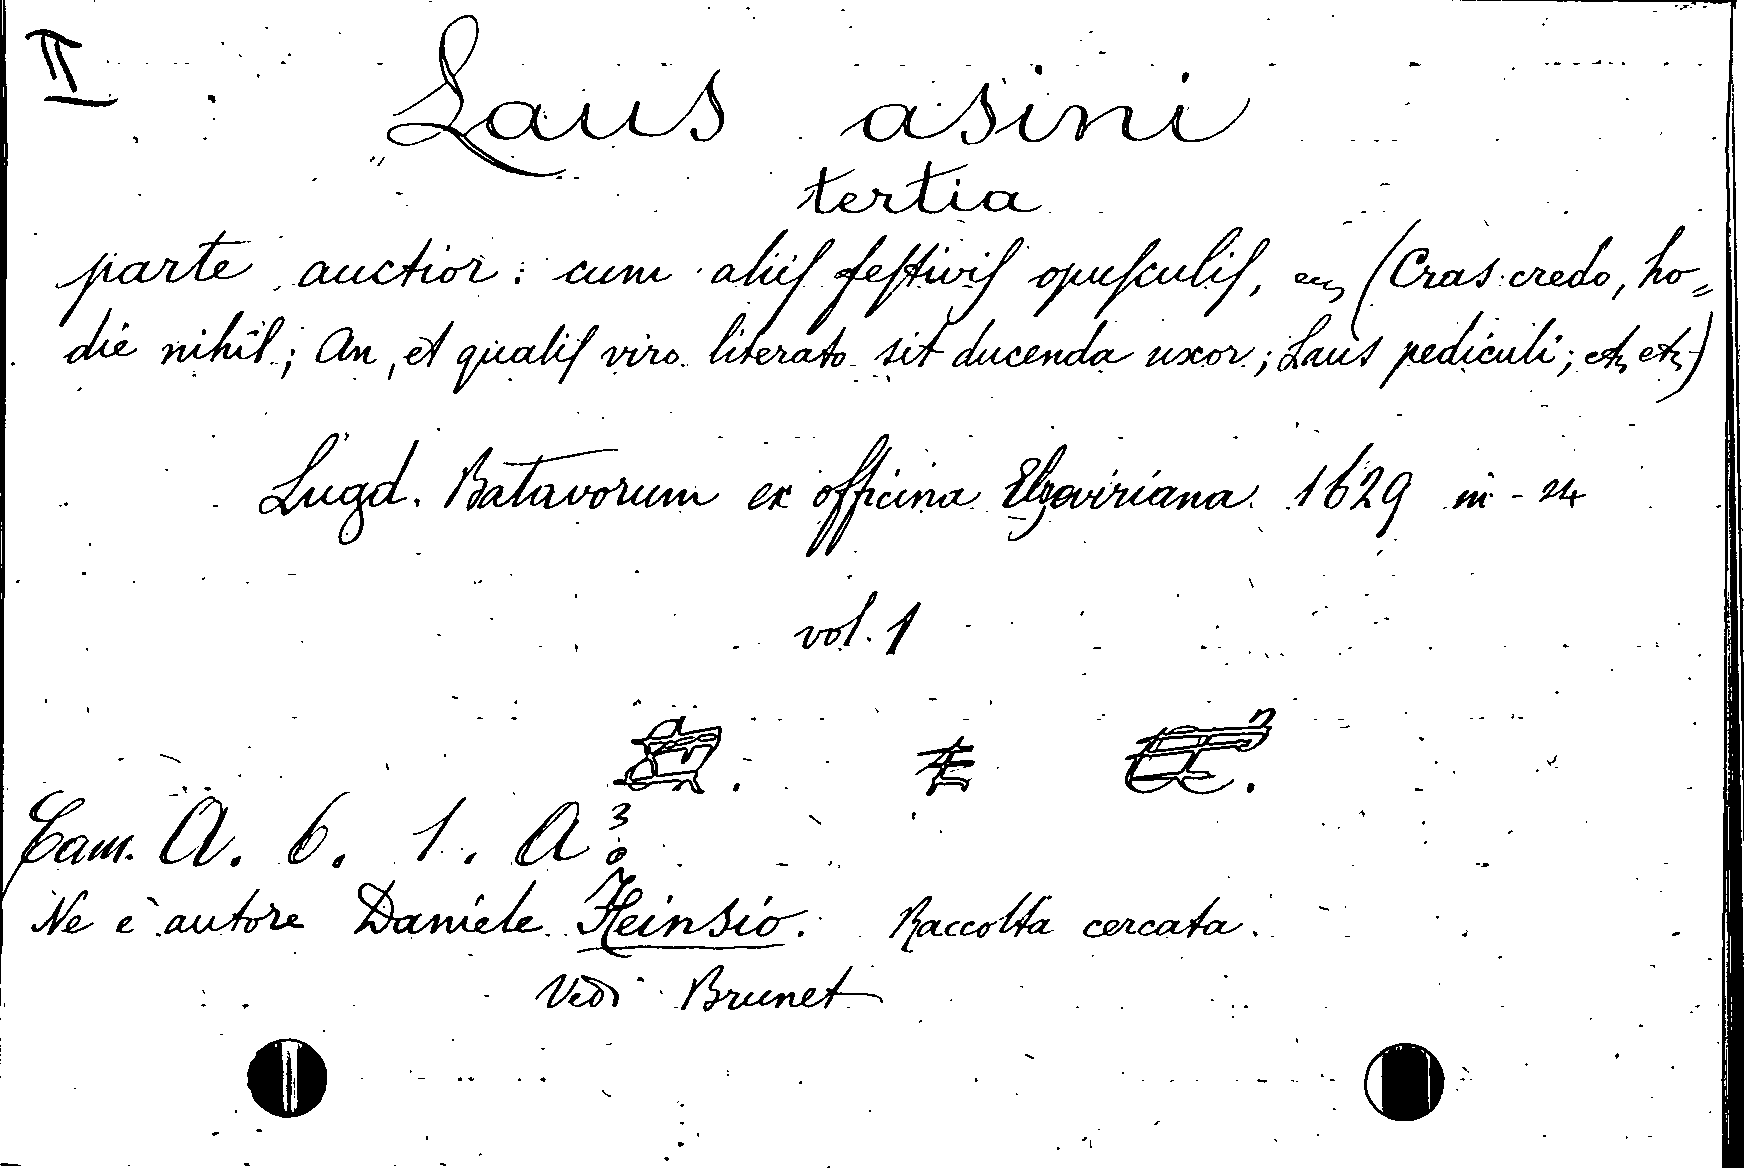 II
Laus asini
tertia
parte auctior: cum aliiſ feſtiviſ opuſculiſ, (Cras credo, ho=
die nihil; An, et qualiſ viro literato sit ducenda uxor; Laus pediculi; etc etc)
Lugd. Batavorum ex officina Elzeviriana 1629 in-24
vol. 1
Cam. A. 6. 1. A 3.
Ne è autore Daniele Heinsio. Raccolta cercata.
Vedi Brunet